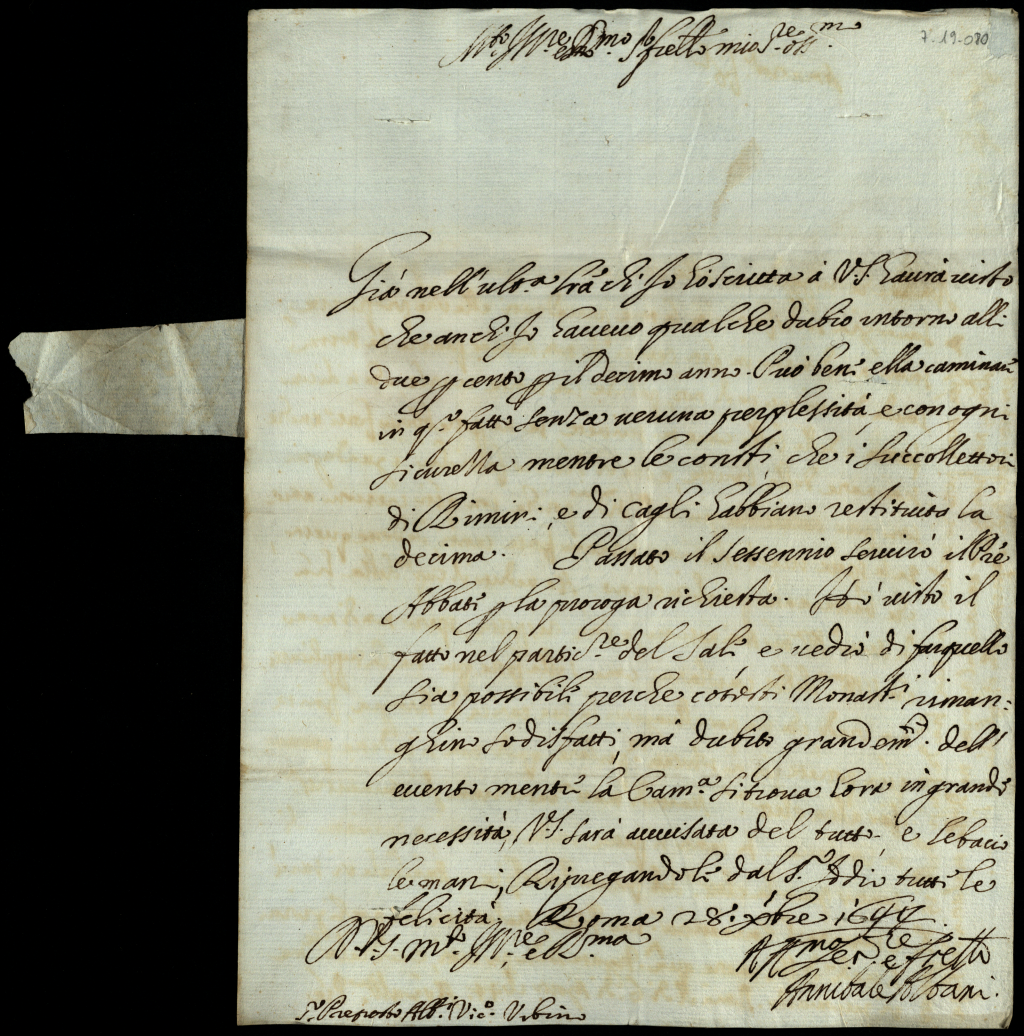 7-19-080
Mto Ill.re e Rmo Sr fratello mio Sre oss.mo
Già nell'ult.a lrã ch'Io hò scritta à V.S. haurà visto
che anch'Io haueuo qualche dubio intorno alli
due p cento p il Decimo anno. Può beni ella caminar
in qsto fatto senza ueruna perplessità, e con ogni
sicurezza mentre le consti, che i succollettori
di Rimini, e di Cagli habbiano restituito la
decima. Passato il sessennio seruirò il Pre
Abbate p la proroga richiesta. Hò uisto il
fatto nel partic.re del Sale e uedrò di far quello
sia possibile perche cotesti Monast.i riman:
ghino sodisfatti, mà dubito grandem.te dell'
euento mentre la Cam.a si troua hora in grande
necessità, V.S. sarà auuisata del tutto, e le bacio
le mani, Ripregandole dal S.r Iddio tutte le
felicità. Roma 28. Xbre 1644
D. V.S. M.to Ill.re e R.ma
Aff.mo Ser.re e fratello
Annibale Albani.
S.r Preposto Alb.i Vic.o Urbino